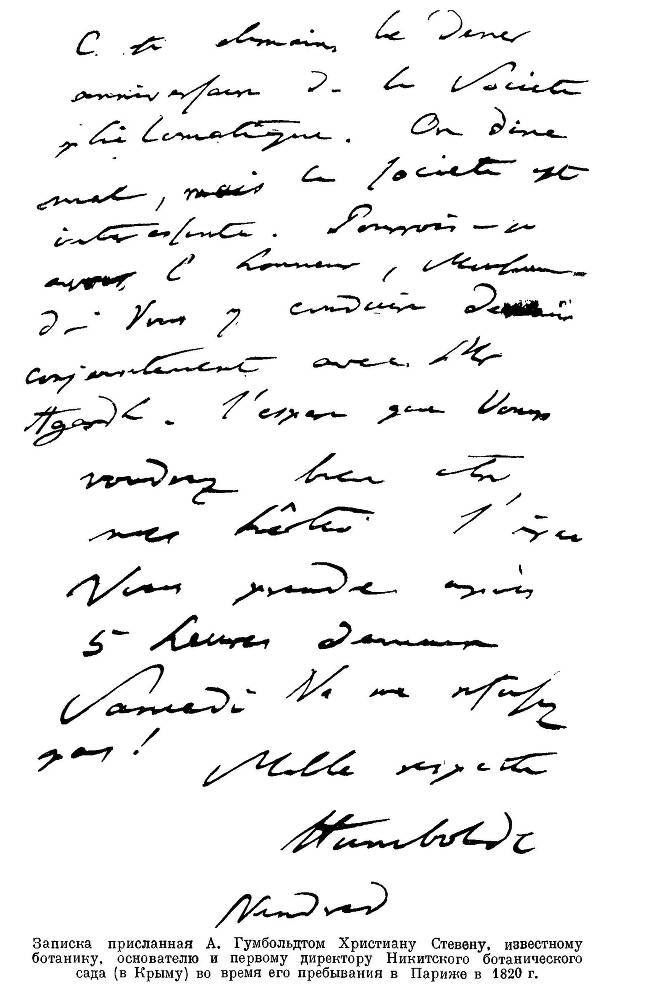 C'est demain le dîner
anniversaire de la Société
philomatique. On dîne
mal, mais la société est
intéressante. Pourrois-je
avoir l'honneur, Monsieur
de Vous y conduire
conjointement avec Mr
Agardh. J'espère que Vous
voudrez bien être
mes hôtes. J'irai
Vous prendre après
5 heures demain
Samedi Ne me refusez
pas!
Mille respects
Humboldt
Vendredi
Записка присланная А. Гумбольдтом Христиану Стевену, известному
ботанику, основателю и первому директору Никитского ботанического
сада (в Крыму) во время его пребывания в Париже в 1820 г.